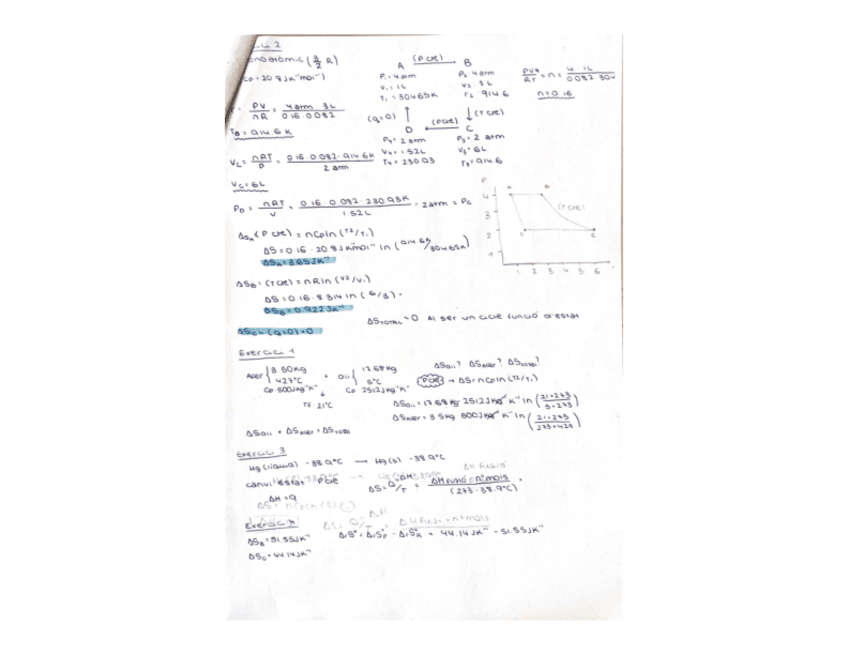 ci 2
onoatòmic (3/2 R)
A (P cte) → B
Cp = 20'8 JK⁻¹mol⁻¹
P₁ = 4 atm
V₁ = 1L
T₁ = 304'65K
P₂ 4 atm
V₂ 3L
T₂ 914'6
n = 0'16
PV/nR = 4 atm · 3L / 0'16 · 0'082
T_B = 914'6 K
(q=0) ↑
↓ (T cte)
D ← (P cte) C
P₄ = 2 atm
V₄ = 1'52L
T₄ = 230'93
P₃ = 2 atm
V₃ = 6L
T₃ = 914'6
V_C = nRT/P = 0'16 · 0'082 · 914'6K / 2 atm
V_C = 6L
P_D = nRT/V = 0'16 · 0'082 · 230'93K / 1'52L = 2 atm = P_C
ΔS_A (P cte) = nCp ln (T₂/T₁)
ΔS = 0'16 · 20'8 JKmol⁻¹ ln (914'6K/304'65K)
ΔS_A = 3'65 JK⁻¹
P
4
3
2
1
(T cte)
1 2 3 4 5 6
ΔS_B = (T cte) = nR ln (V₂/V₁)
ΔS = 0'16 · 8'314 ln (6/3) =
ΔS_B = 0'922 JK⁻¹
ΔS_C = (q=0) = 0
ΔS_TOTAL = 0 Al ser un cicle funció d'estat
Exercici 1
Acer 3'50kg 427°C
+ Oli 17'58kg 5°C
Cp 500 Jkg⁻¹K⁻¹
Cp 2512 Jkg⁻¹K⁻¹
Tf 21°C
ΔS oli? ΔS acer? ΔS total?
(P cte) → ΔS = nCp ln (T₂/T₁)
ΔS oli = 17'58 kg · 2512 Jkg⁻¹K⁻¹ ln (21+273 / 5+273)
ΔS acer = 3'5 kg 500 Jkg⁻¹K⁻¹ ln (21+273 / 273+427)
ΔS oli + ΔS acer = ΔS total
Exercici 3
Hg (líquid) -38'9°C → Hg(s) -38'9°C
canvi estat P cte
ΔH = q
ΔS = ΔH/T = / (273-38'9°C)
Exercici
ΔS_B = 51'55 JK⁻¹
ΔS_C = 44'14 JK⁻¹
44'14 JK⁻¹ - 51'55 JK⁻¹